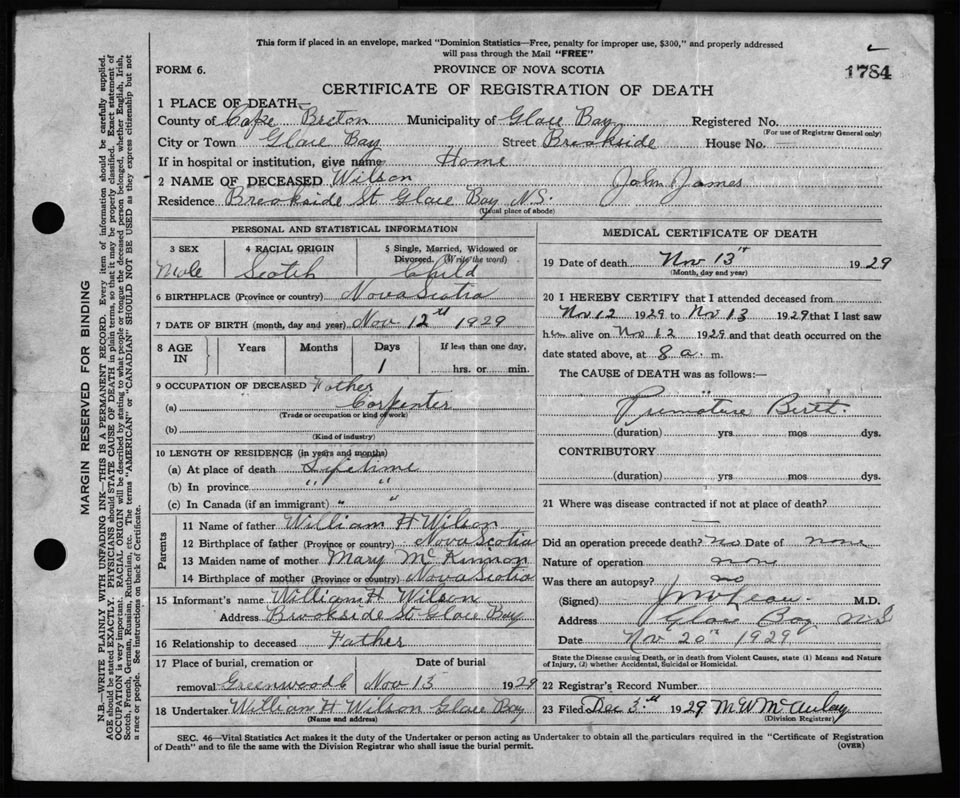 This form if placed in an envelope, marked "Dominion Statistics—Free, penalty for improper use, $300," and properly addressed
will pass through the Mail "FREE"
FORM 6.
PROVINCE OF NOVA SCOTIA
1784
CERTIFICATE OF REGISTRATION OF DEATH
1 PLACE OF DEATH—
County of Cape Breton Municipality of Glace Bay Registered No.
(For use of Registrar General only)
City or Town Glace Bay Street Brookside House No. —
If in hospital or institution, give name Home
2 NAME OF DECEASED Wilson John James
Residence Brookside St Glace Bay N.S.
(Usual place of abode)
PERSONAL AND STATISTICAL INFORMATION
3 SEX
Male
4 RACIAL ORIGIN
Scotch
5 Single, Married, Widowed or
Divorced. (Write the word)
Child
6 BIRTHPLACE (Province or country) Nova Scotia
7 DATE OF BIRTH (month, day and year) Nov 12th 1929
8 AGE IN
Years Months Days If less than one day,
1 hrs. or min.
9 OCCUPATION OF DECEASED Father
(a) Carpenter
(Trade or occupation or kind of work)
(b)
(Kind of industry)
10 LENGTH OF RESIDENCE (in years and months)
(a) At place of death Lifetime
(b) In province " "
(c) In Canada (if an immigrant) " "
Parents
11 Name of father William H Wilson
12 Birthplace of father (Province or country) Nova Scotia
13 Maiden name of mother Mary McKinnon
14 Birthplace of mother (Province or country) Nova Scotia
15 Informant's name William H. Wilson
Address Brookside St Glace Bay
16 Relationship to deceased Father
17 Place of burial, cremation or Date of burial
removal Greenwood Nov 13 1929
18 Undertaker William H Wilson Glace Bay
(Name and address)
MEDICAL CERTIFICATE OF DEATH
19 Date of death Nov 13th 1929
(Month, day and year)
20 I HEREBY CERTIFY that I attended deceased from
Nov 12 1929 to Nov 13 1929 that I last saw
him alive on Nov 12 1929 and that death occurred on the
date stated above, at 8 a. m.
The CAUSE of DEATH was as follows:—
Premature Birth.
(duration) yrs mos dys.
CONTRIBUTORY
(duration) yrs mos dys.
21 Where was disease contracted if not at place of death?
—
Did an operation precede death? no Date of none
Nature of operation none
Was there an autopsy? no
(Signed) M.D.
Address Glace Bay NS
Date Nov 20th 1929
State the Disease causing Death, or in death from Violent Causes, state (1) Means and Nature
of Injury, (2) whether Accidental, Suicidal or Homicidal.
22 Registrar's Record Number
23 Filed Dec 3rd 1929 M W McAulay
(Division Registrar)
SEC. 46—Vital Statistics Act makes it the duty of the Undertaker or person acting as Undertaker to obtain all the particulars required in the "Certificate of Registration
of Death" and to file the same with the Division Registrar who shall issue the burial permit.
(OVER)
MARGIN RESERVED FOR BINDING
N.B.—WRITE PLAINLY WITH UNFADING INK—THIS IS A PERMANENT RECORD. Every item of information should be carefully supplied.
AGE should be stated EXACTLY. PHYSICIANS should STATE CAUSE OF DEATH in plain terms, so that it may be properly classified. Exact statement of
OCCUPATION is very important. RACIAL ORIGIN will be described by stating to what people or tongue the deceased person belonged, whether English, Irish,
Scotch, French, German, Russian, Ruthenian, etc. The terms "AMERICAN" or "CANADIAN" SHOULD NOT BE USED as they express citizenship but not
a race or people. See instructions on back of Certificate.